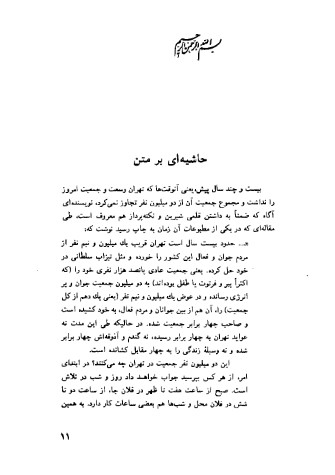 بسم الله الرحمن الرحیم
حاشیه‌ای بر متن
بیست و چند سال پیش، یعنی آنوقت‌ها که تهران وسعت و جمعیت امروز
را نداشت و مجموع جمعیت آن از دو میلیون نفر تجاوز نمی‌کرد، نویسنده‌ای
آگاه که ضمناً به داشتن قلمی شیرین و نکته‌پرداز هم معروف است، طی
مقاله‌ای که در یکی از مطبوعات آن زمان به چاپ رسید. نوشت که:
«... حدود بیست سال است تهران قریب یك میلیون و نیم نفر از
مردم جوان و فعال این کشور را خورده و مثل تیزاب سلطانی در
خود حل کرده. یعنی جمعیت عادی پانصد هزار نفری خود را (که
اکثراً پیر و فرتوت یا طفل بوده‌اند) به دو میلیون جمعیت جوان و پر
انرژی رسانده و در عوض یك میلیون و نیم نفر (یعنی یك دهم از کل
جمعیت) را، آن هم از بین جوانان و مردم فعال، به خود کشیده است
و صاحب چهار برابر جمعیت شده. در حالیکه طی این مدت نه
عواید تهران به چهار برابر رسیده، نه گندم و آذوقه‌اش چهار برابر
شده و نه وسیلهٔ زندگی را به چهار مقابل کشانده است.
این دو میلیون نفر جمعیت در تهران چه می‌کنند؟ در ابتدای
امر، از هر کس بپرسید جواب خواهد داد روز و شب دو تلاش
است. صبح از ساعت هفت تا ظهر در فلان جا، از ساعت دو تا
شش در فلان محل و شب‌ها هم بعضی ساعات کار دارد. به همین
۱۱